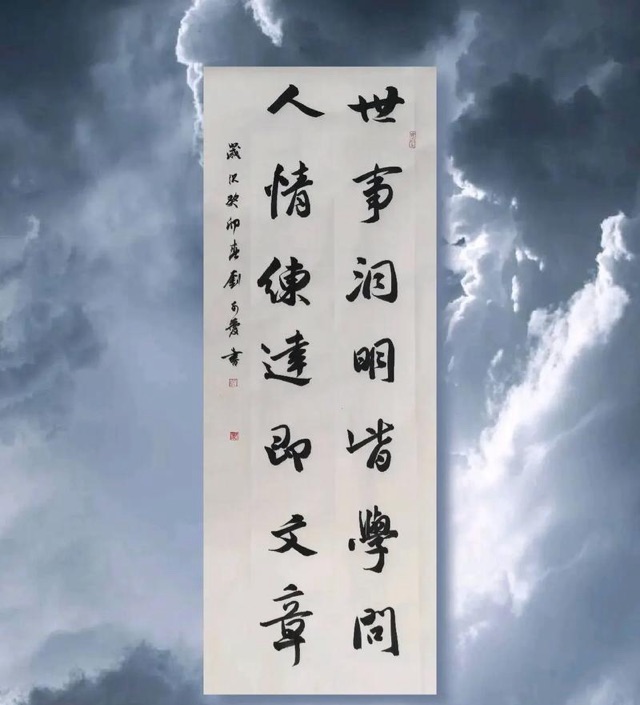 世事洞明皆學問
人情練達即文章
歲次癸卯春劉愛書